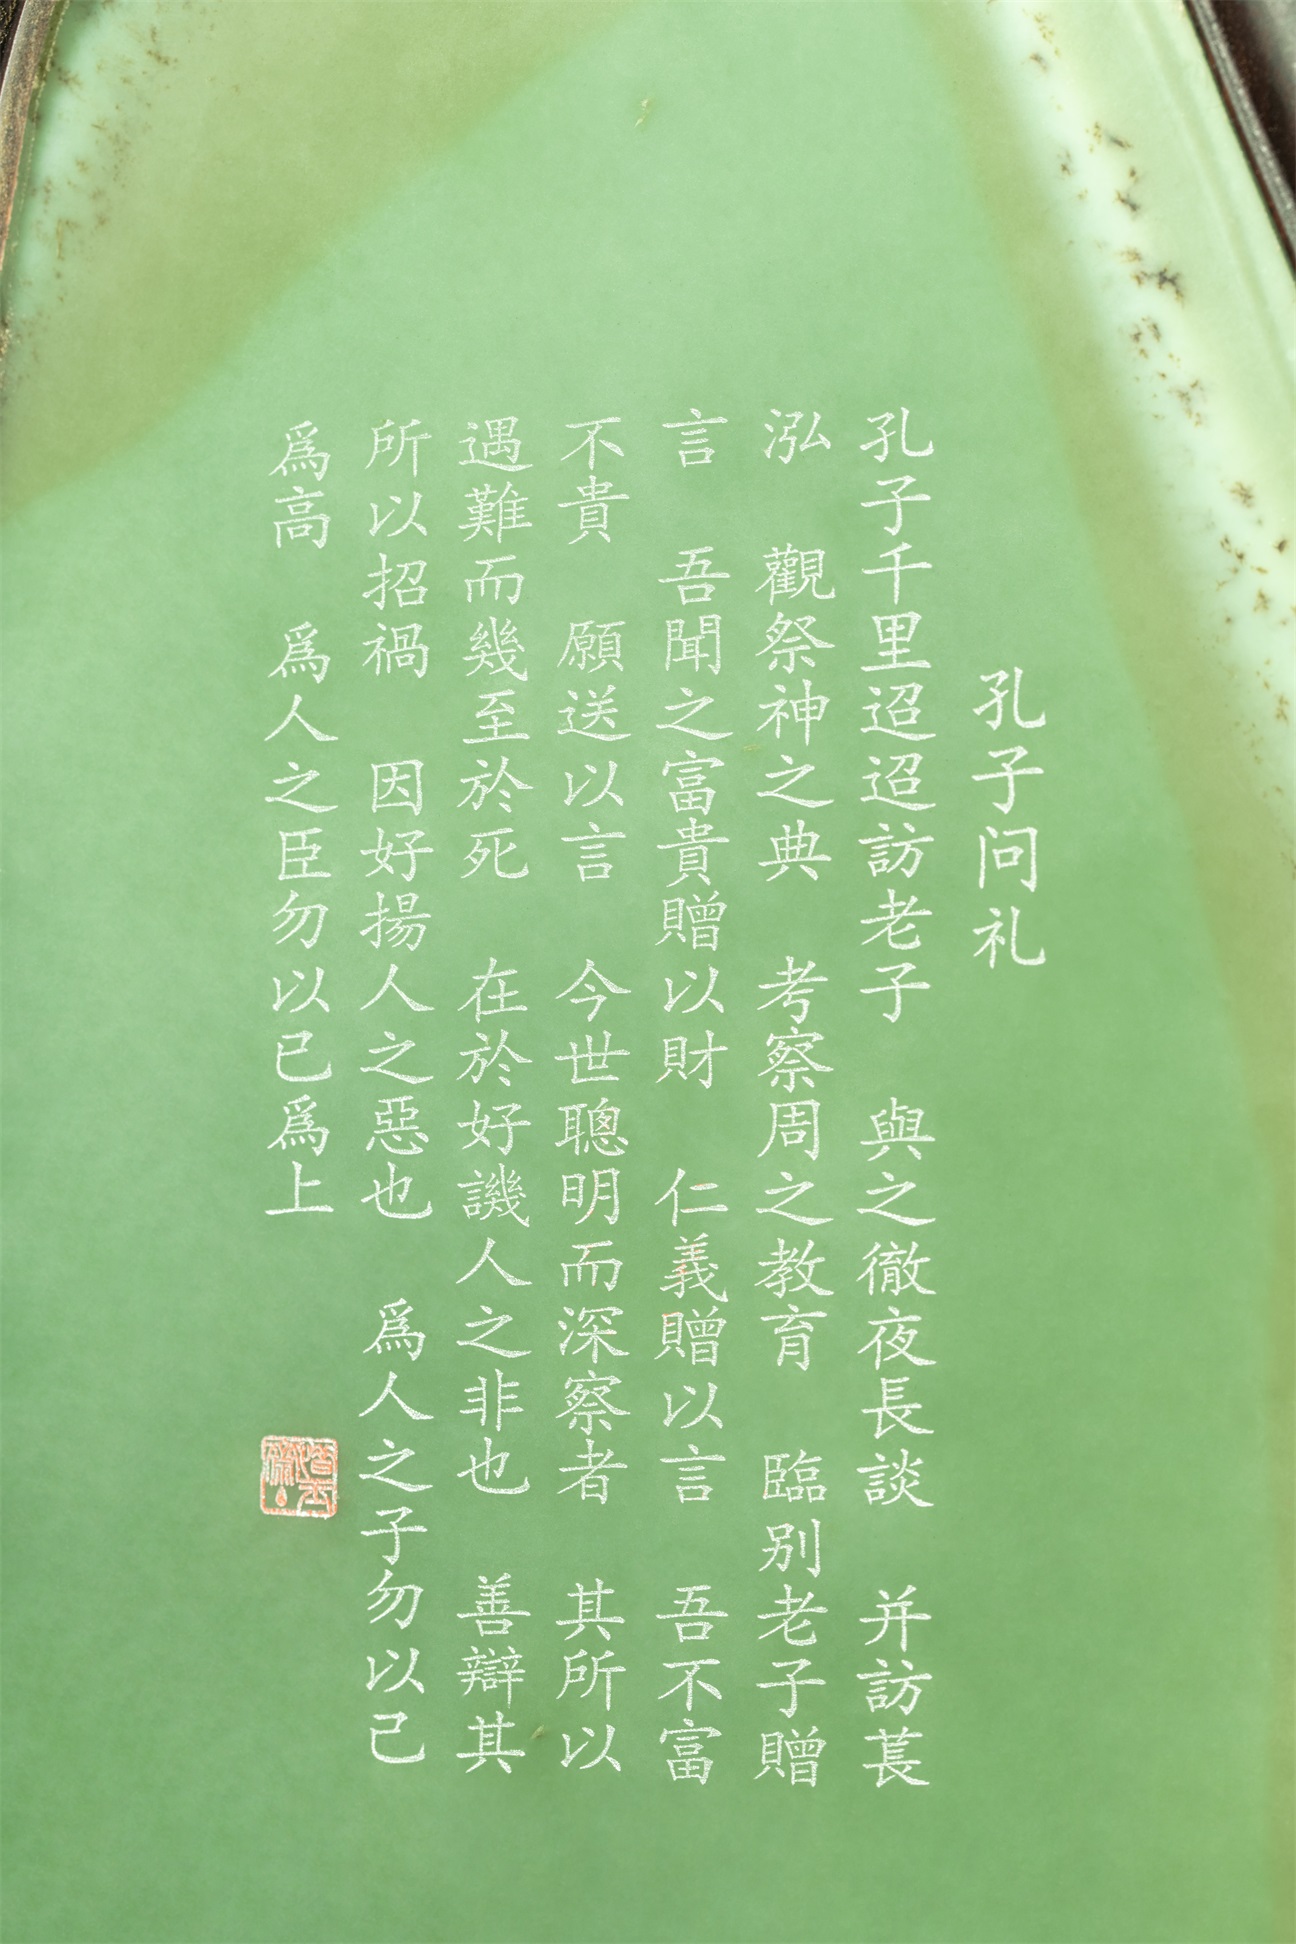 孔子问礼
孔子千里迢迢訪老子 與之徹夜長談 并訪萇
泓 觀祭神之典 考察周之教育 臨别老子贈
言 吾聞之富貴贈以財 仁義贈以言 吾不富
不貴 願送以言 今世聰明而深察者 其所以
遇難而幾至於死 在於好譏人之非也 善辯其
所以招禍 因好揚人之惡也 爲人之子勿以己
爲高 爲人之臣勿以已爲上